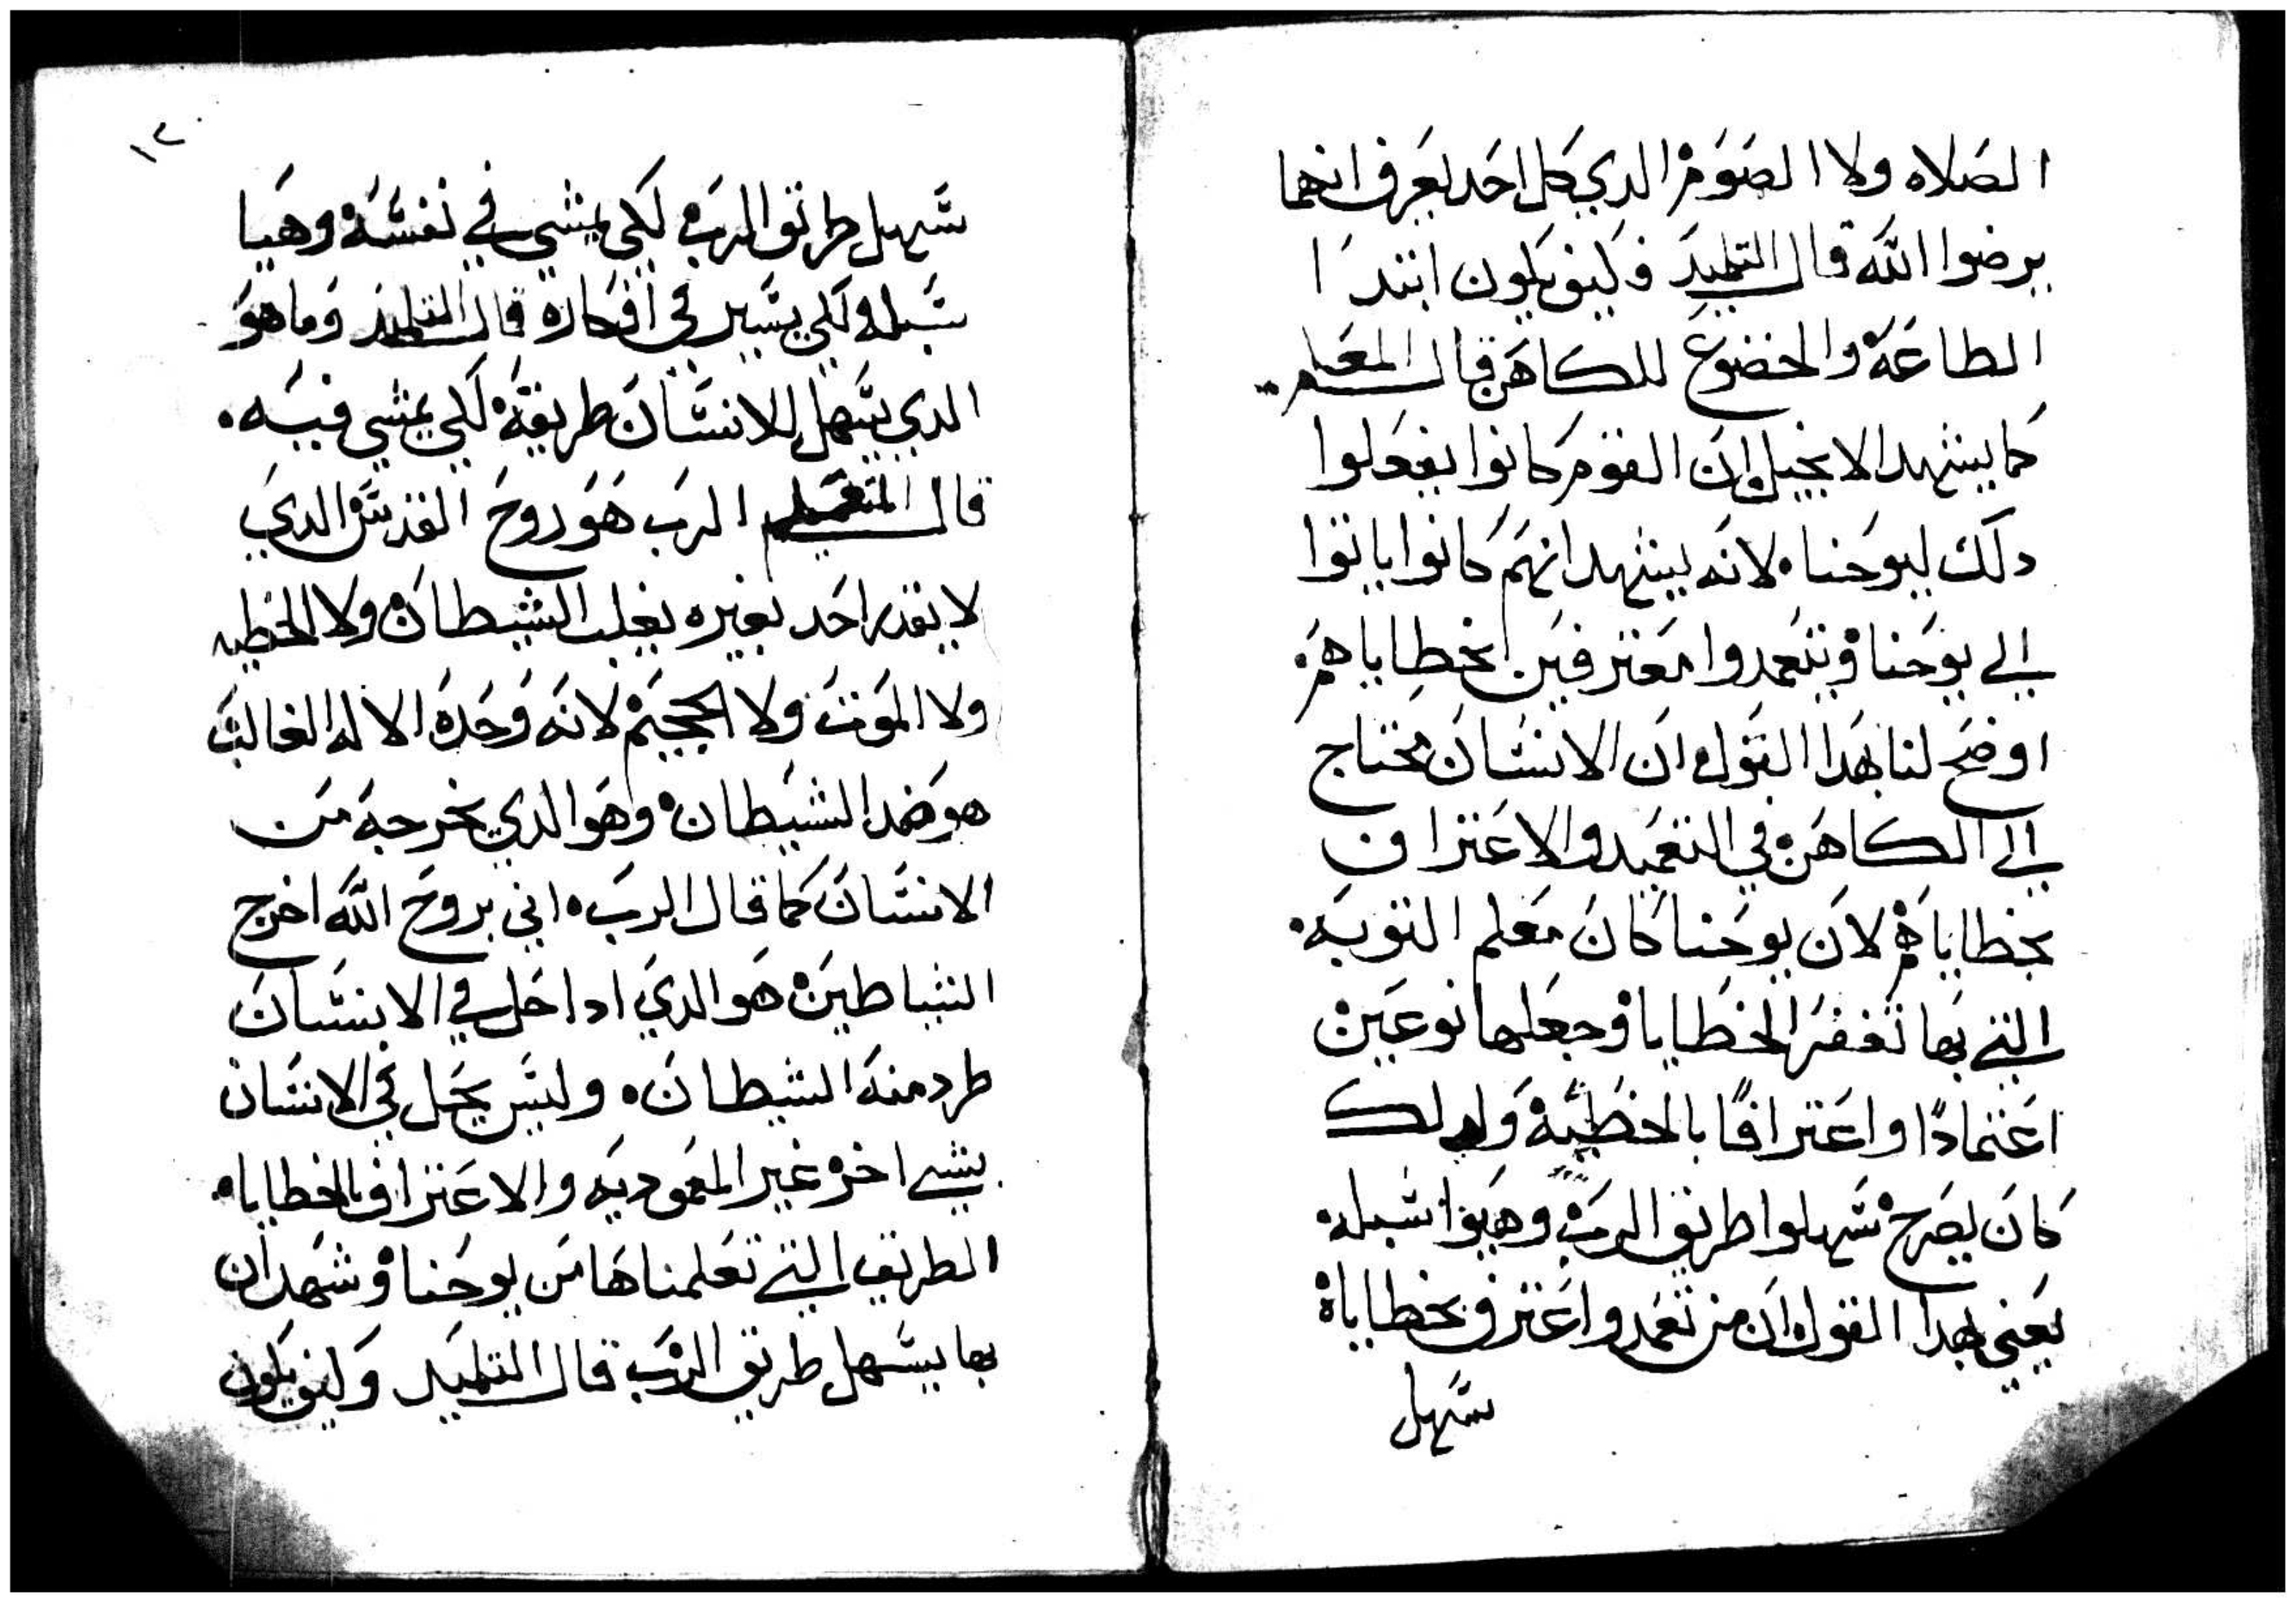 الصلاه ولا الصوم الدي كل احد يعرف انهما
يرضوا الله قال التلميد فكيف يكون ابتدا
الطاعة والخضوع للكاهن قال المعلم
كما يشهد الانجيل ان القوم كانوا يفعلوا
دلك ليوحنا. لانه يشهد انهم كانوا ياتوا
الي يوحنا ويتعمدوا معترفين بخطاياهم.
اوضح لنا بهدا القول ان الانسان محتاج
الي الكاهن في التعميد والاعتراف
بخطاياهم لان يوحنا كان معلم التوبه.
التي بها تغفر الخطايا وجعلها نوعين
اعتمادًا واعترافًا بالخطيئة ولدلك
كان يصرخ سهلوا طريق الرب وهيوا سبله.
يعني بهدا القول ان من تعمد واعترف بخطاياة
سهل
١٢
سهل طريق الرب لكي يمشي في نفسه وهيا
سبله ولكي يسير في افكاره قال التلميد وما هو
الدي يسهل للانسان طريقة لكي يمشي فيه.
قال المعلم الرب هو روح القدس الدي
لا يقدر احد بغيره يغلب الشيطان ولا الخطيه
ولا الموت ولا الجحيم لانه وحده الاله الغالب
هو ضد الشيطان وهو الدي يخرجه من
الانسان كما قال الرب. اني بروح الله اخرج
الشياطين هو الدي ادا حل في الانسان
طرد منه الشيطان. وليس يحل في الانسان
بشي اخر غير المعموديه والاعتراف بالخطايا.
الطريق التي تعلمناها من يوحنا وشهد ان
بها يسهل طريق الرب قال التلميد وكيف يكون